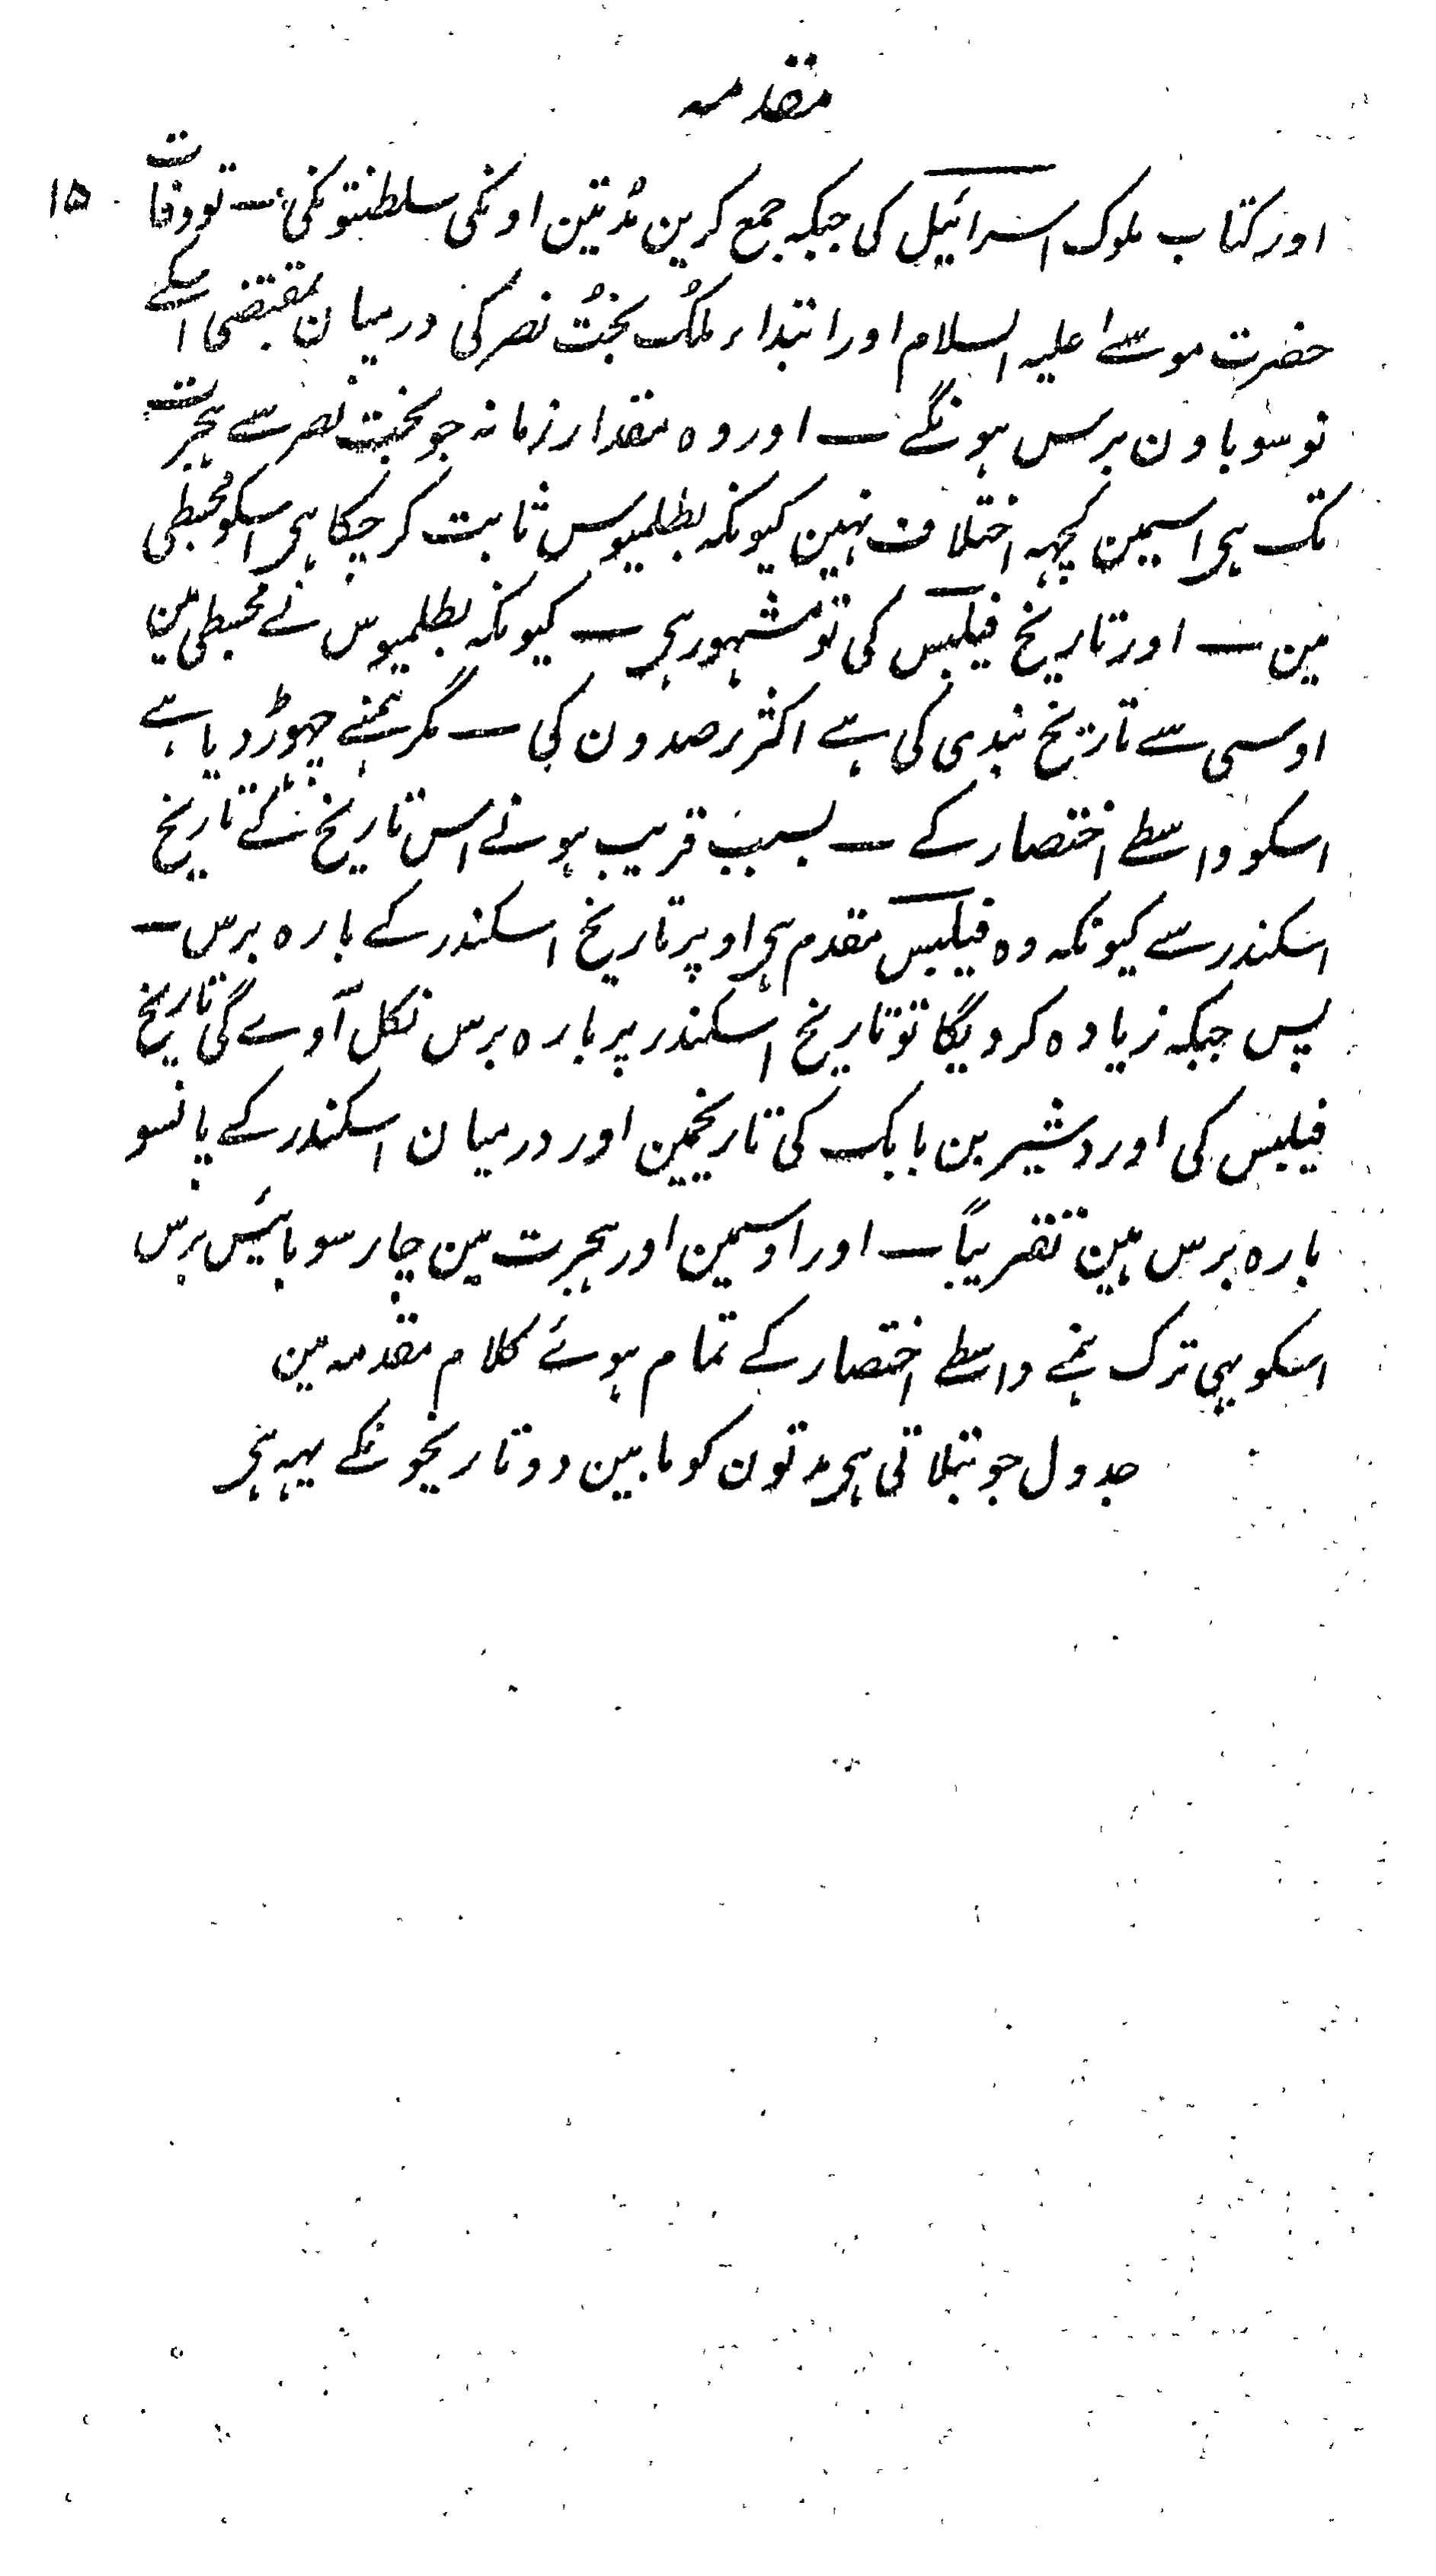 مقدمہ
۱۵
اور کتاب ملوک اسرائیل کی جبکہ جمع کرین مُدتین اونکی سلطنتونکی ــ تو وفات
حضرت موسےٰ علیہ السلام اور ابتداء ملک بخُت نصر کی درمیان بمقتضی اسکے
نو سو باون برس ہونگے ــ اور وہ مقدار زمانہ جو بخت نصر سے ہجرت
تک ہی اسمین کچہہ اختلاف نہین کیونکہ بطلمیوس ثابت کر چکا ہی اسکو مجبطی
مین ــ اور تاریخ فیلبس کی تو مشہور ہی ــ کیونکہ بطلمیوس نے مجبطی مین
اوسی سے تاریخ بندی کی ہے اکثر رصدون کی ــ مگر ہمنے چہوڑ دیا ہے
اسکو واسطے اختصار کے ــ بسبب قریب ہونے اس تاریخ کے تاریخ
اسکندر سے کیونکہ وہ فیلبس مقدم ہی اوپر تاریخ اسکندر کے بارہ برس ــ
پس جبکہ زیادہ کر دیگا تو تاریخ اسکندر پر بارہ برس نکل آوے گی تاریخ
فیلبس کی اور دشیر بن بابک کی تاریخمین اور درمیان اسکندر کے پانسو
بارہ برس ہین تقریباً ــ اور اوسمین اور ہجرت مین چار سو بائیس برس
اسکو بہی ترک ہمنے واسطے اختصار کے تمام ہوئے کلام مقدمہ مین
جدول جو بتلاتی ہی مدتون کو مابین دو تاریخونکے یہہ ہی